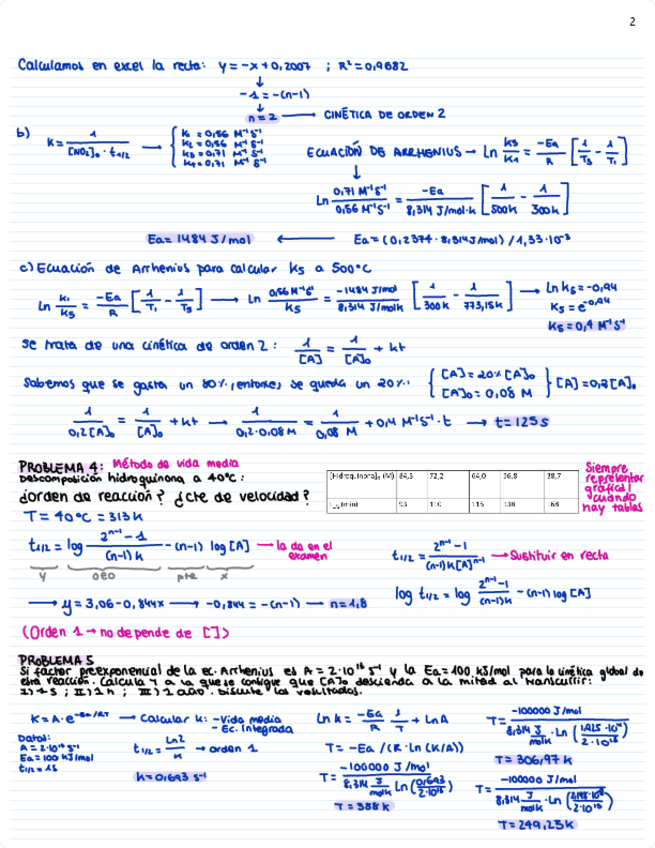 2
Calculamos en excel la recta: y = -x + 0,2007 ; R² = 0,9682
↓
-1 = -(n-1)
↓
n = 2 → CINÉTICA DE ORDEN 2
b) K = 1 / ([NO₂]₀ · t1/2) → { K₁ = 0,56 M⁻¹s⁻¹
K₂ = 0,56 M⁻¹s⁻¹
K₃ = 0,71 M⁻¹s⁻¹
K₄ = 0,71 M⁻¹s⁻¹
ECUACIÓN DE ARRHENIUS → Ln K₃/K₁ = -Ea/R [1/T₃ - 1/T₁]
↓
Ln 0,71 M⁻¹s⁻¹ / 0,56 M⁻¹s⁻¹ = -Ea / 8,314 J/mol·K [1/500K - 1/300K]
Ea = 1484 J/mol ← Ea = (0,2374 · 8,314 J/mol) / 1,33·10⁻³
c) Ecuación de Arrhenius para calcular K5 a 500°C
Ln K₁/K₅ = -Ea/R [1/T₁ - 1/T₅] → Ln 0,56 M⁻¹s⁻¹ / K₅ = -1484 J/mol / 8,314 J/molK [1/300K - 1/773,15K] → Ln K₅ = -0,94
K₅ = e^-0,94
K₅ = 0,4 M⁻¹s⁻¹
Se trata de una cinética de orden 2: 1/[A] = 1/[A]₀ + Kt
Sabemos que se gasta un 80%, entonces se queda un 20%: { [A] = 20% [A]₀
[A]₀ = 0,08 M } [A] = 0,2[A]₀
1 / 0,2[A]₀ = 1/[A]₀ + Kt → 1 / 0,2·0,08 M = 1 / 0,08 M + 0,4 M⁻¹s⁻¹·t → t = 125 s
PROBLEMA 4: Método de vida media
Descomposición hidroquinona a 40°C:
¿orden de reacción? ¿cte de velocidad?
[Hidroquinona]₀ (M) 84,5 72,2 64,0 56,8 38,7
t1/2 (min) 93 110 115 138 168
Siempre representar gráfica cuando hay tablas
T = 40°C = 313 K
t1/2 = log (2ⁿ⁻¹ - 1) / (n-1)K - (n-1) log [A] → la da en el examen
y oeo pte x
t1/2 = (2ⁿ⁻¹ - 1) / (n-1)K[A]ⁿ⁻¹ → Sustituir en recta
log t1/2 = log (2ⁿ⁻¹ - 1) / (n-1)K - (n-1) log [A]
→ y = 3,06 - 0,844x → -0,844 = -(n-1) → n = 1,8
(Orden 1 → no depende de [ ])
PROBLEMA 5
Si factor preexponencial de la ec. Arrhenius es A = 2·10¹⁶ s⁻¹ y la Ea = 100 kJ/mol para la cinética global de
esta reacción. Calcula T a la que se consigue que [A]₀ descienda a la mitad al transcurrir:
I) 1 s ; II) 1 h ; III) 1 año. Discute los resultados.
K = A·e^-Ea/RT → Calcular K: - Vida media
- Ec. integrada
Datos:
A = 2·10¹⁶ s⁻¹
Ea = 100 kJ/mol
t1/2 = 1s
t1/2 = Ln2 / K → orden 1
K = 0,693 s⁻¹
Ln K = -Ea/R · 1/T + Ln A
T = -Ea / (R · Ln (K/A))
T = -100000 J/mol / 8,314 J/molK Ln (0,693 / 2·10¹⁶)
T = 388 K
T = -100000 J/mol / 8,314 J/molK · Ln (1,925·10⁻⁴ / 2·10¹⁶)
T = 306,97 K
T = -100000 J/mol / 8,314 J/molK · Ln (2,198·10⁻⁸ / 2·10¹⁶)
T = 249,25 K